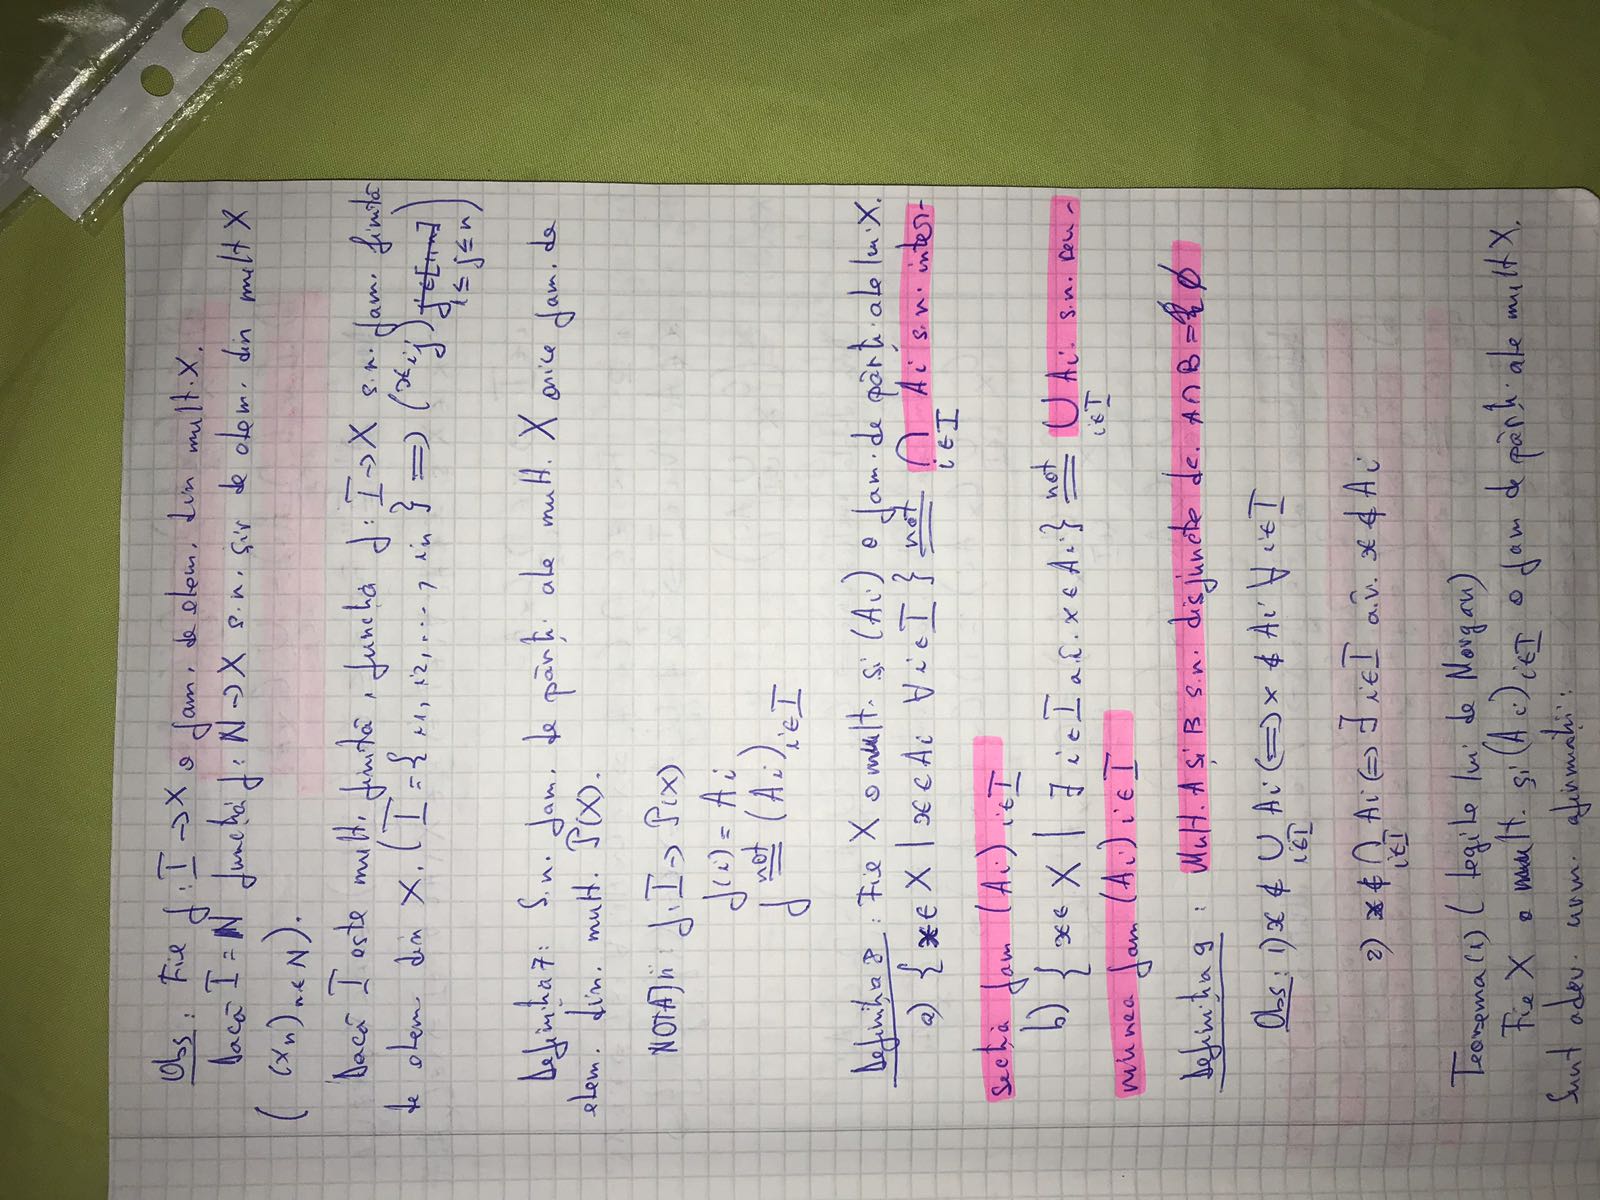 Obs: Fie f: I → X o fam. de elem. din mult. X.
Dacă I = N funcția f: N → X s.n. șir de elem. din mult X
(xn) n∈N).
Dacă I este mult. finită, funcția f: I → X s.n. fam. finită
de elem din X. (I = {i1, i2, ..., in} ⟹ (xij) j∈[1,n]
1 ≤ j ≤ n)
Definiția 7: S.n. fam. de părți ale mult. X orice fam. de
elem. din mult. P(X).
NOTAȚII: f: I → P(X)
f(i) = Ai
f not (Ai) i∈I
Definiția 8: Fie X o mult. și (Ai) o fam. de părți ale lui X.
a) {x∈X | x∈Ai ∀ i∈I} not ∩ Ai s.n. inter-
i∈I
secția fam (Ai) i∈I
b) {x∈X | ∃ i∈I a.î. x∈Ai} not ∪ Ai s.n. reu-
i∈I
niunea fam (Ai) i∈I
Definiția 9: Mult. A și B s.n. disjuncte dc. A∩B = ∅
Obs: 1) x∉ ∪ Ai ⟺ x∉Ai ∀ i∈I
i∈I
2) x∉ ∩ Ai ⟺ ∃ i∈I a.î. x∉Ai
i∈I
Teorema (1) (legile lui de Morgan)
Fie X o mult. și (Ai) i∈I o fam de părți ale mult X.
Sunt adev. urm. afirmații: